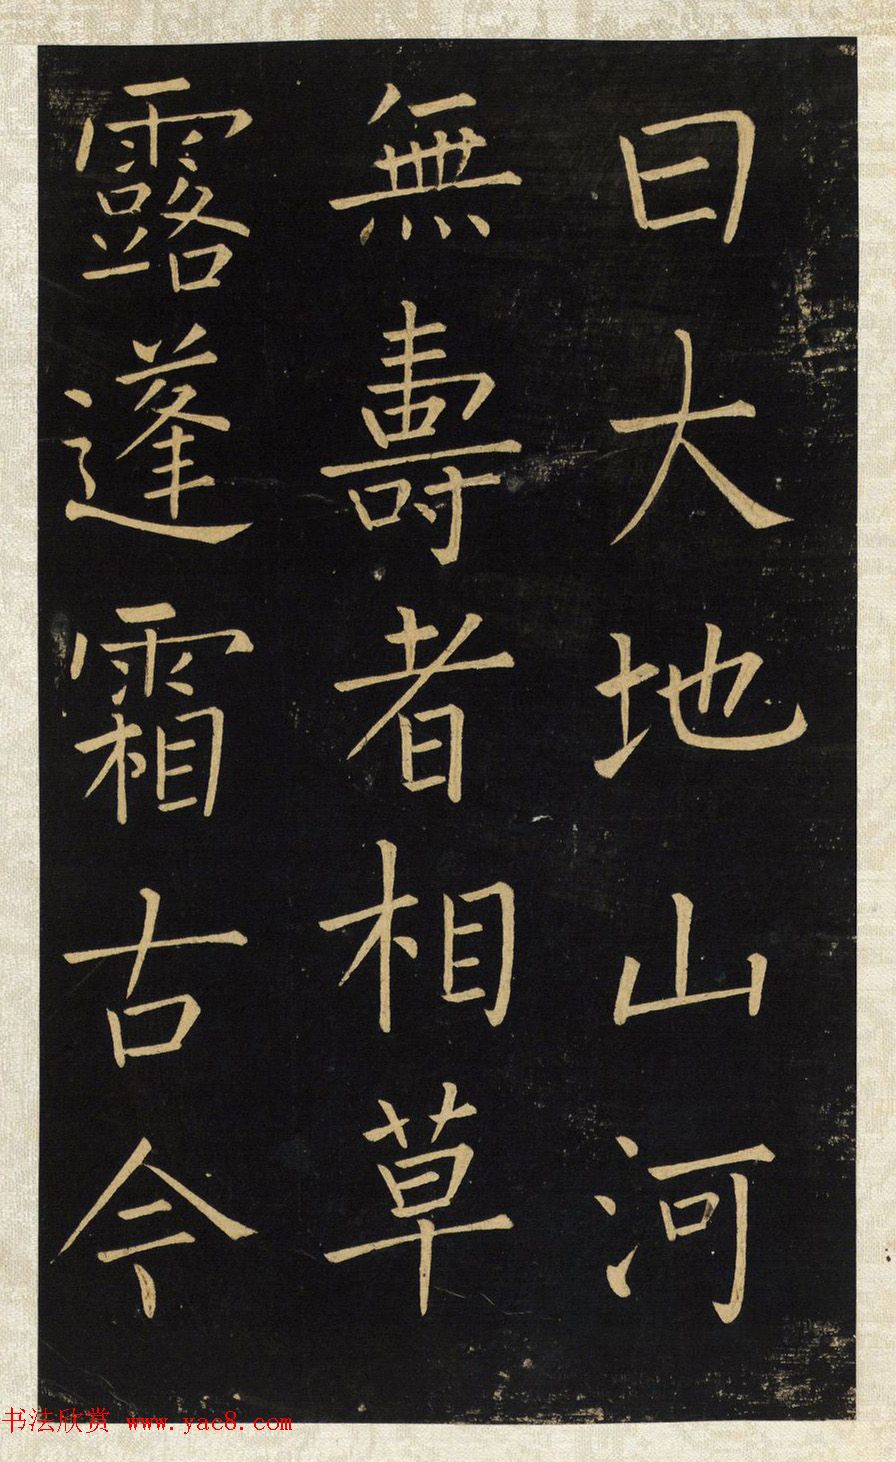 曰大地山河
無壽者相草
露蓬霜古今
书法欣赏 www.yac8.com